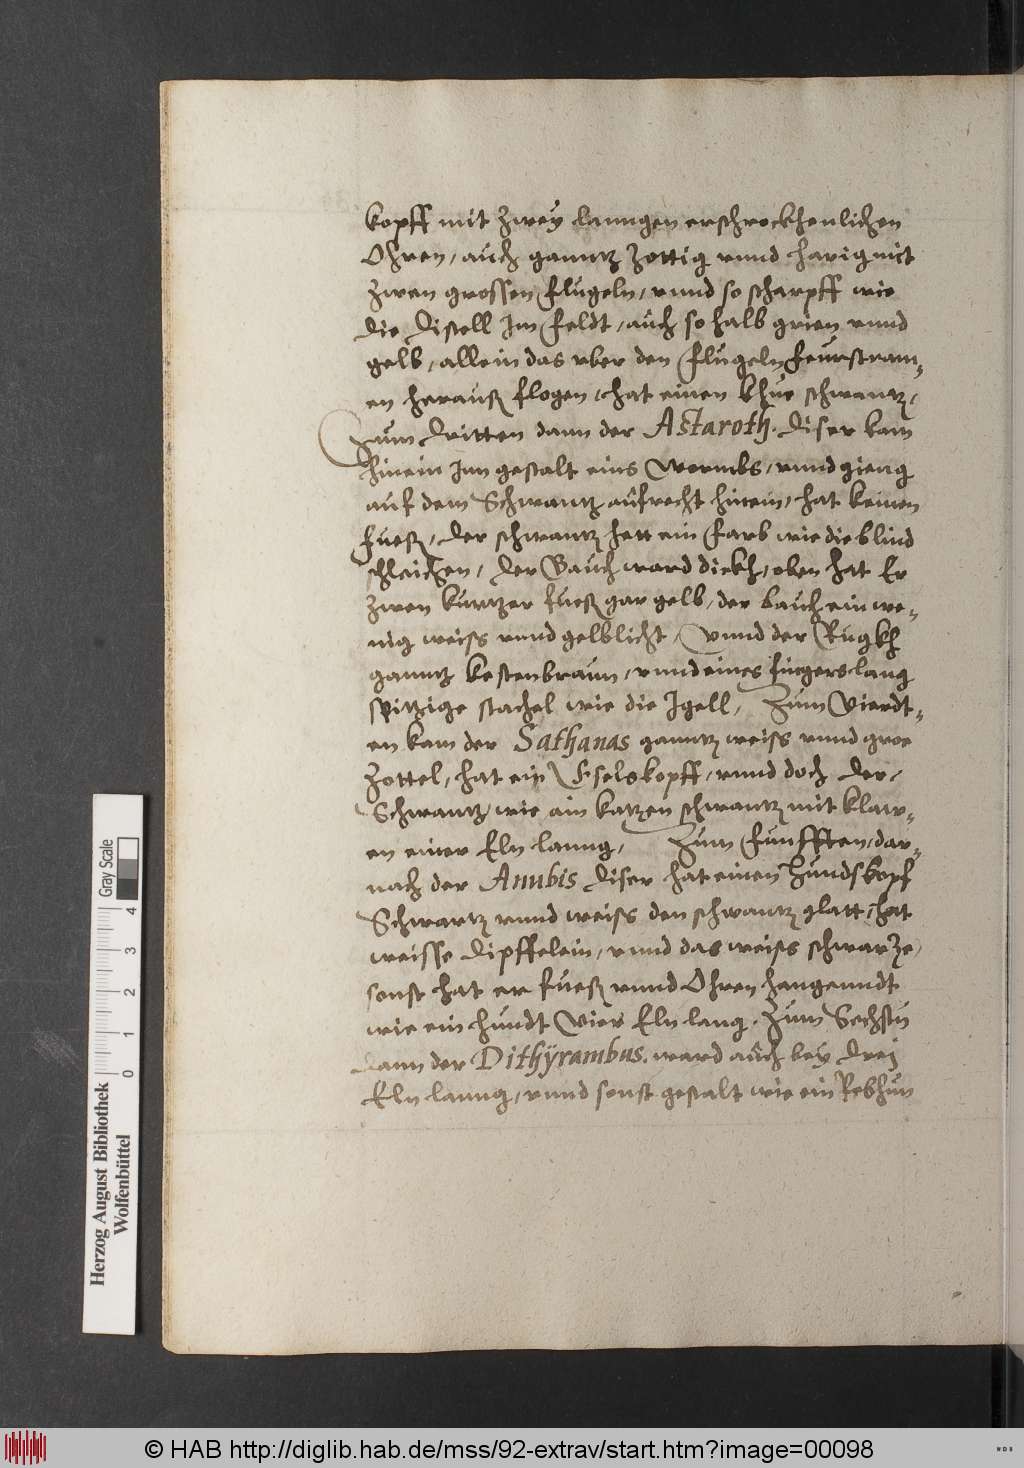 kopff mit zwey lanngen erschrockhenlichen
Ohren, auch ganntz zottig vnnd harig mit
zwen grossen Flŭgeln, vnnd so scharpff wie
die Distell Im Feldt, auch so halb grien vnnd
gelb, allein das vber den Flŭgeln Feurstram-
en herauß flogen, hat einen Khue schwantz,
Zum dritten dann der Astaroth. diser kam
hinein Inn gestalt eins Wormbs, vnnd gieng
auf dem Schwantz aufrecht hinein, hat keinen
fueß, der schwantz hett ein Farb wie die blind
schleichen, der Bauch ward dickh, oben hat Er
zwen kurtzer fueß gar gelb, der bauch ein we-
nig weiss vnnd gelblicht, Vnnd der Rugkh
ganntz kestenbraun, vnnd eines fingers lang
spitzige stachel wie die Igell, Zum Vierdt-
en kam der Sathanas ganntz weiss vnnd groe
zottel, hat ein Eselskopff, vnnd doch der
Schwantz wie ain katzen schwantz mit klaw-
en einer Eln lanng, Zum Funfften, dar-
nach der Anubis diser hat einen Hundskopf
Schwartz vnnd weiss den schwantz glatt, hat
weisse dipffelein, vnnd das weiss schwarze,
sonst hat er fueß vnnd Ohren hangenndt
wie ein hundt Vier Eln lang. Zum Sechstn
dann der Dithÿrambus. ward auch bey drej
Eln lanng, vnnd sonst gestalt wie ein Rebhun
Herzog August Bibliothek
Wolfenbüttel
0 1 2 3 4
Gray Scale
© HAB http://diglib.hab.de/mss/92-extrav/start.htm?image=00098
WDB